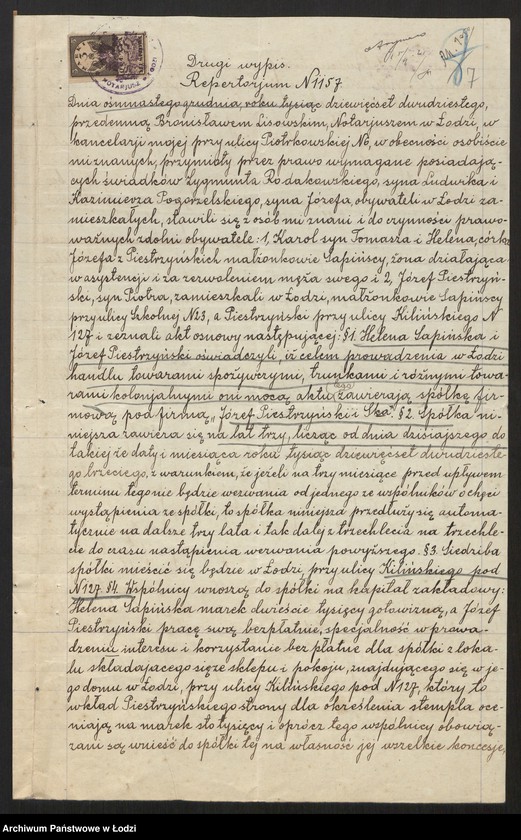 Drugi wypis.
Repertorjum N 1157.
Dnia osiemnastego grudnia, roku tysiąc dziewięćset dwudziestego,
przedemną Bronisławem Lisowskim, Notarjuszem w Łodzi, w
kancelarji mojej przy ulicy Piotrkowskiej No, w obecności osobiście
mi znanych, przymioty przez prawo wymagane posiadają-
cych świadków Zygmunta Rodakowskiego, syna Ludwika i
Kazimierza Pogorzelskiego, syna Józefa, obywateli w Łodzi za-
mieszkałych, stawili się z osób mi znani i do czynności prawo-
ważnych zdolni obywatele: 1, Karol syn Tomasza i Helena, córka
Józefa z Piestrzyńskich małżonkowie Sapińscy, żona działająca
w asystencji i za zezwoleniem męża swego i 2, Józef Piestrzyń-
ski, syn Piotra, zamieszkali w Łodzi, małżonkowie Sapińscy
przy ulicy Szkolnej N 23, a Piestrzyński przy ulicy Kilińskiego N
127 i zeznali akt osnowy następującej: §1. Helena Sapińska i
Józef Piestrzyński oświadczyli, iż celem prowadzenia w Łodzi
handlu towarami spożywczymi, trunkami i różnymi towa-
rami kolonjalnymi oni mocą aktu tego zawierają spółkę fir-
mową pod firmą "Józef Piestrzyński i S-ka" §2. Spółka ni-
niejsza zawiera się na lat trzy, licząc od dnia dzisiejszego do
takiejże daty i miesiąca roku tysiąc dziewięćset dwudzieste-
go trzeciego, z warunkiem, że jeżeli na trzy miesiące przed upływem
terminu tego nie będzie wezwania od jednego ze wspólników o chęci
wystąpienia ze spółki, to spółka niniejsza przedłuży się automa-
tycznie na dalsze trzy lata i tak dalej z trzechlecia na trzechle-
cie do czasu nastąpienia wezwania powyższego. §3. Siedziba
spółki mieścić się będzie w Łodzi, przy ulicy Kilińskiego pod
N 127. §4. Wspólnicy wnoszą do spółki na kapitał zakładowy:
Helena Sapińska marek dwieście tysięcy gotowizną, a Józef
Piestrzyński pracę swą bezpłatnie, specjalność w prowa-
dzeniu interesu i korzystanie bezpłatne dla spółki z loka-
lu składającego się ze sklepu i pokoju, znajdującego się w je-
go domu w Łodzi, przy ulicy Kilińskiego pod N 127, który to
wkład Piestrzyńskiego strony dla określenia stempla oce-
niają na marek sto tysięcy i oprócz tego wspólnicy obowią-
zani są wnieść do spółki tej na własność jej wszelkie koncesje,
Archiwum Państwowe w Łodzi